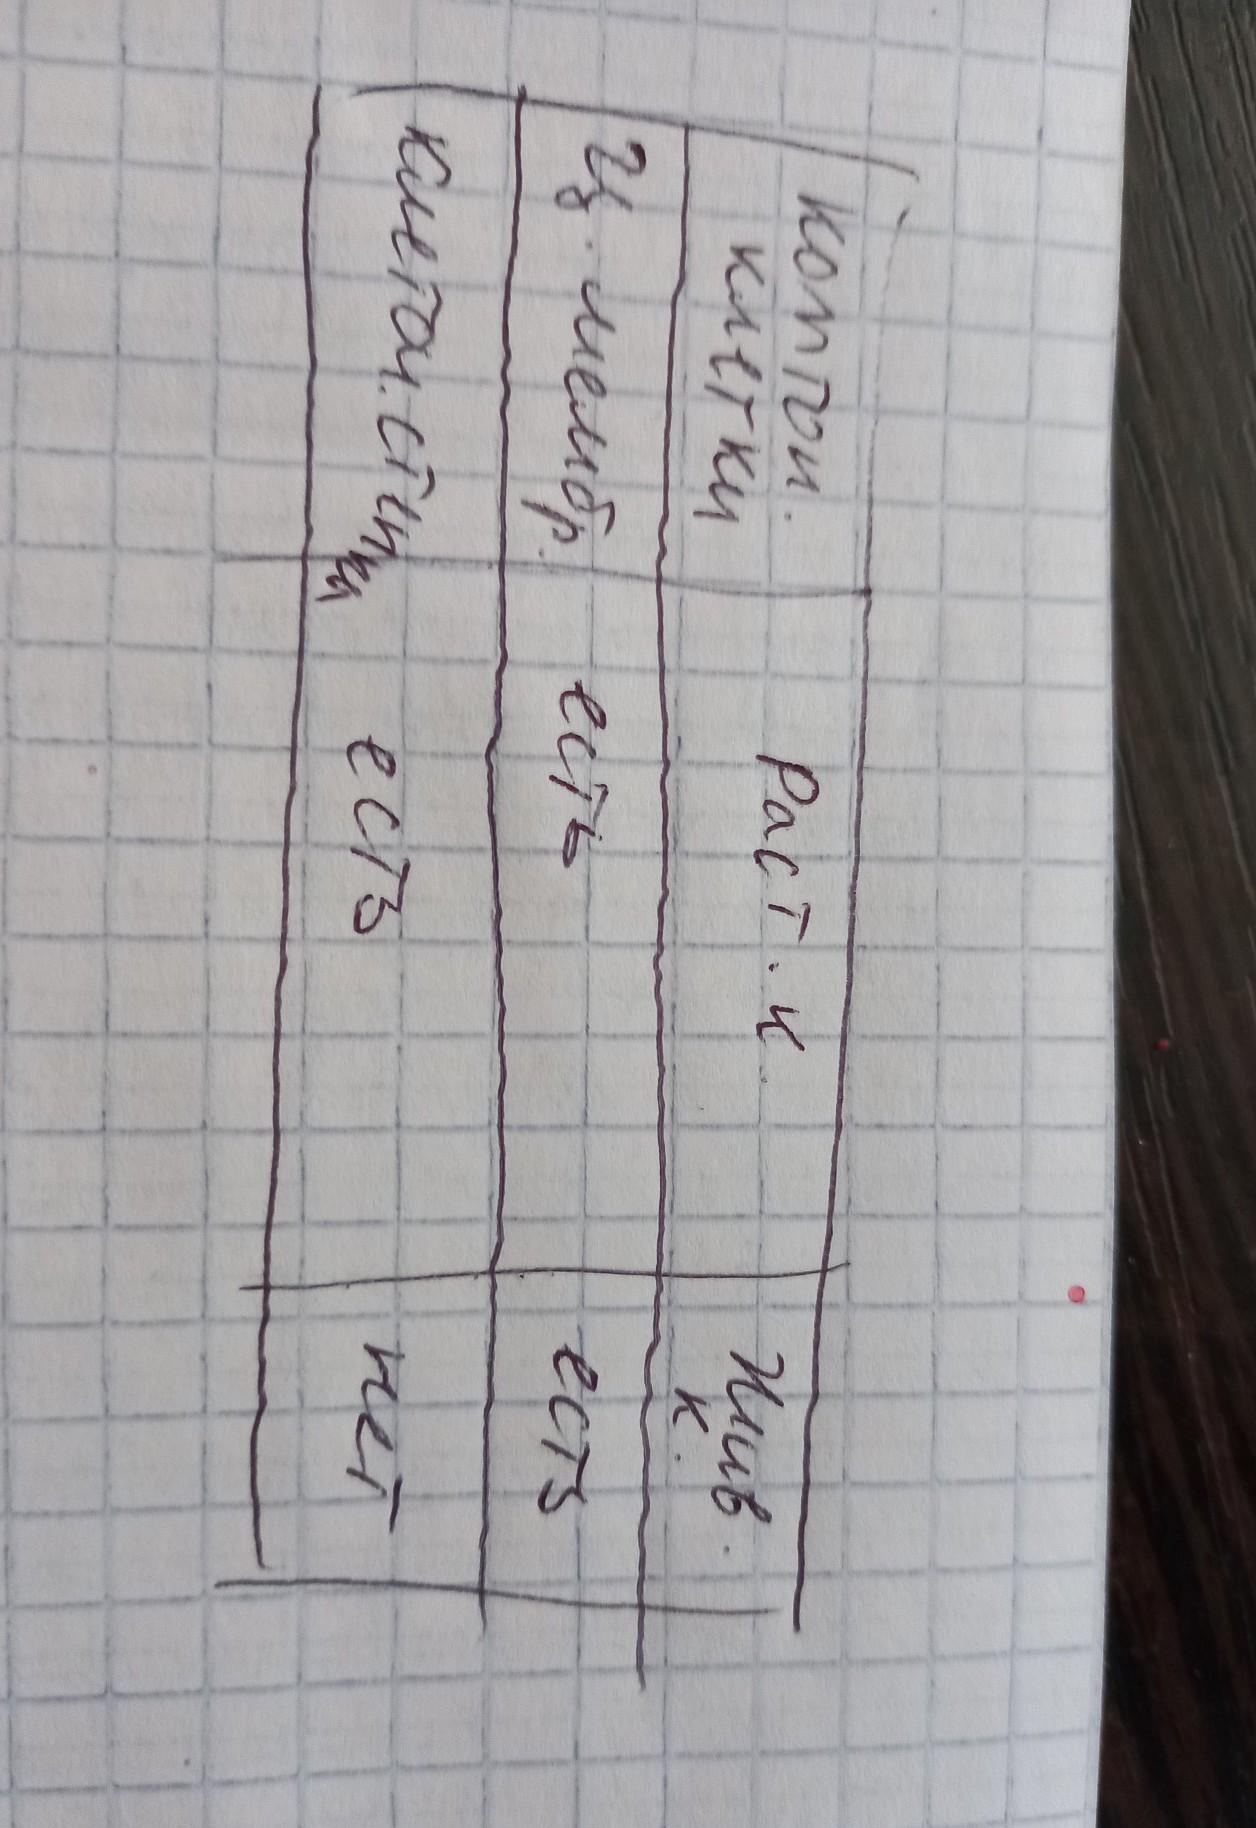 Компон. Раст. к. Жив.
клетки к.
Ц. мембр. есть есть
Клеточ. стенки есть нет